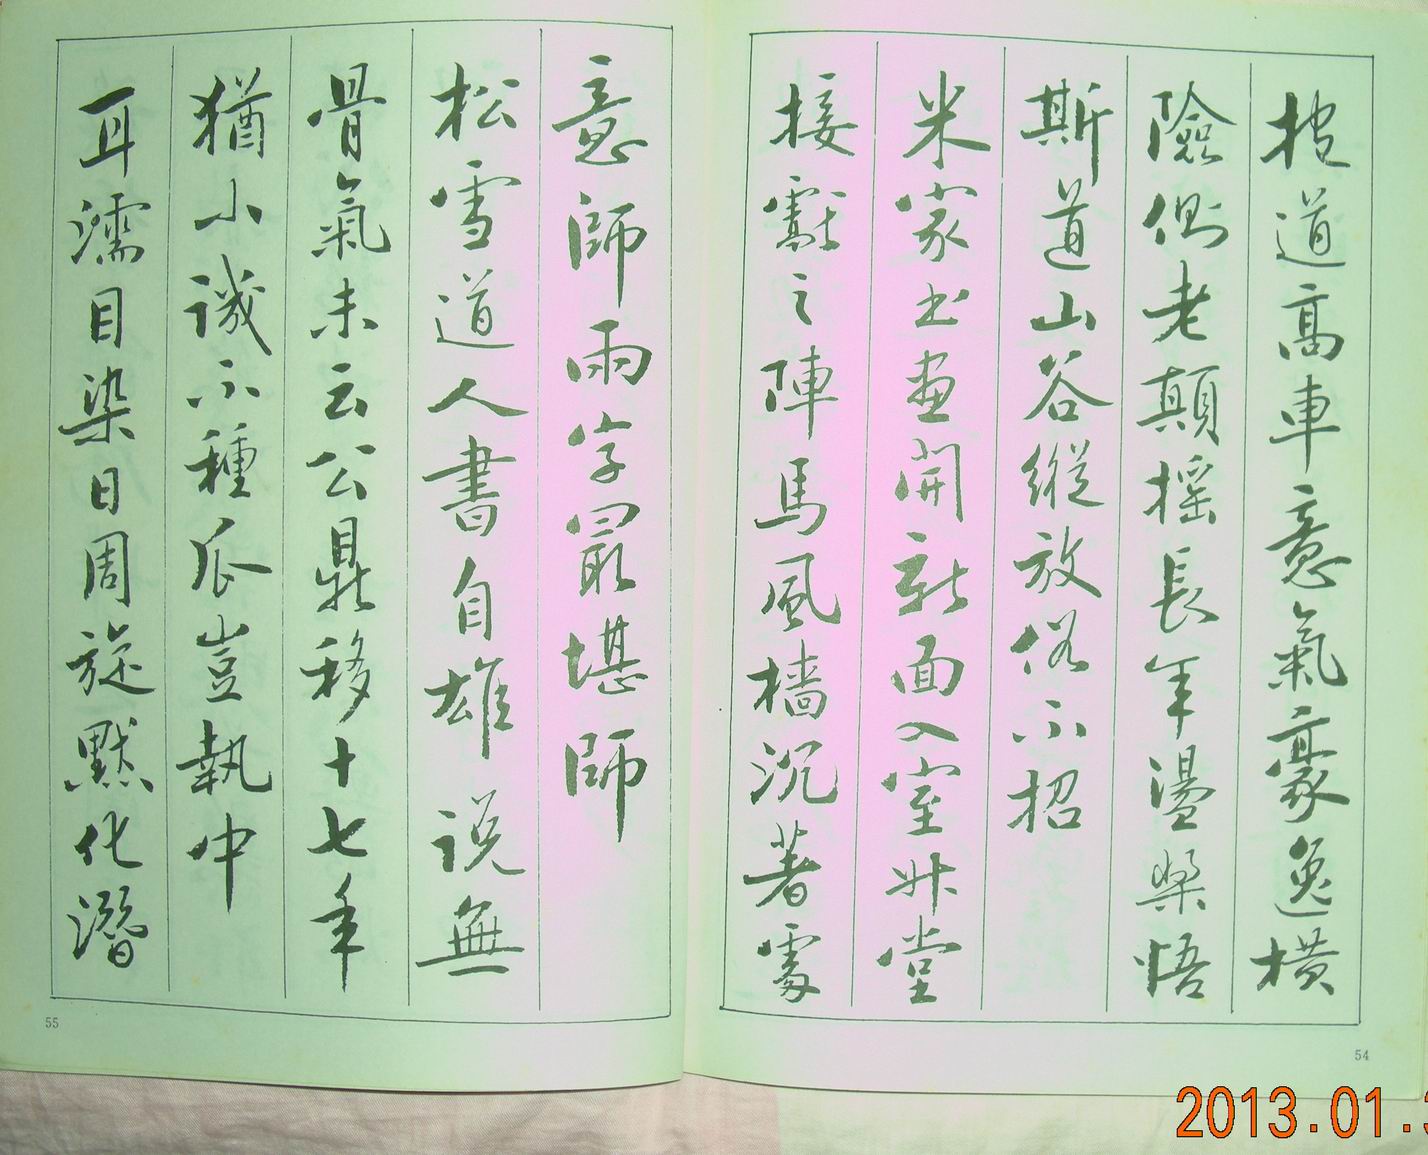 披道高車意氣豪逸橫
險側老顛搖長年盪槳悟
斯道山谷縱放俗不招
米家書畫開新面入室升堂
接獻之陣馬風檣沉著處
54
意師兩字最堪師
松雪道人書自雄說無
骨氣未云公鼎移十七年
猶小譏不種瓜豈執中
耳濡目染日周旋默化潛
55
2013.01.3